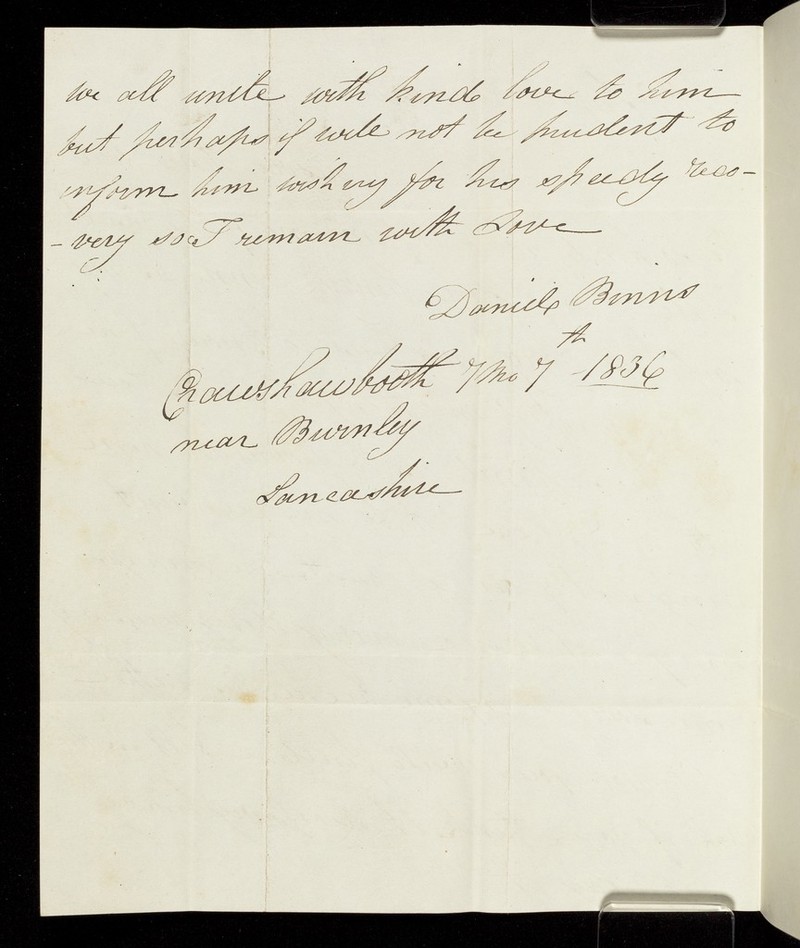 we all unite with kind love to him
but perhaps if will not be prudent to
inform him wishing for his speedy reco-
-very so I remain with Love
Daniel Binns
Crawshawbooth 7 Mo 7th 1836
near Burnley
Lancashire